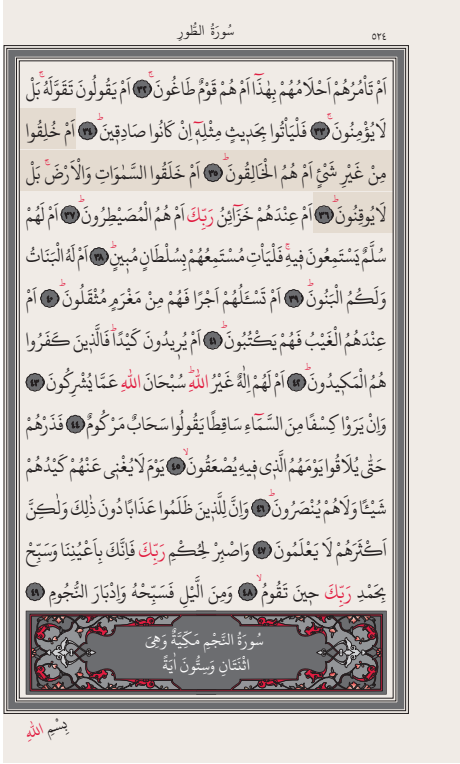 سُورَةُ الطُّورِ
٥٢٤
اَمْ تَأْمُرُهُمْ اَحْلَامُهُمْ بِهٰذَٓا اَمْ هُمْ قَوْمٌ طَاغُونَۚ ﴿٣٢﴾ اَمْ يَقُولُونَ تَقَوَّلَهُۚ بَلْ
لَا يُؤْمِنُونَۚ ﴿٣٣﴾ فَلْيَأْتُوا بِحَدِيثٍ مِثْلِهِٓ اِنْ كَانُوا صَادِقِينَۜ ﴿٣٤﴾ اَمْ خُلِقُوا
مِنْ غَيْرِ شَيْءٍ اَمْ هُمُ الْخَالِقُونَۜ ﴿٣٥﴾ اَمْ خَلَقُوا السَّمٰوَاتِ وَالْاَرْضَۚ بَلْ
لَا يُوقِنُونَۜ ﴿٣٦﴾ اَمْ عِنْدَهُمْ خَزَٓائِنُ رَبِّكَ اَمْ هُمُ الْمُصَيْطِرُونَۜ ﴿٣٧﴾ اَمْ لَهُمْ
سُلَّمٌ يَسْتَمِعُونَ فِيهِۚ فَلْيَأْتِ مُسْتَمِعُهُمْ بِسُلْطَانٍ مُبِينٍۜ ﴿٣٨﴾ اَمْ لَهُ الْبَنَاتُ
وَلَكُمُ الْبَنُونَۜ ﴿٣٩﴾ اَمْ تَسْـَٔلُهُمْ اَجْرًا فَهُمْ مِنْ مَغْرَمٍ مُثْقَلُونَۜ ﴿٤٠﴾ اَمْ
عِنْدَهُمُ الْغَيْبُ فَهُمْ يَكْتُبُونَۜ ﴿٤١﴾ اَمْ يُرِيدُونَ كَيْدًاۜ فَالَّذِينَ كَفَرُوا
هُمُ الْمَكِيدُونَۜ ﴿٤٢﴾ اَمْ لَهُمْ اِلٰهٌ غَيْرُ اللّٰهِۜ سُبْحَانَ اللّٰهِ عَمَّا يُشْرِكُونَ ﴿٤٣﴾
وَاِنْ يَرَوْا كِسْفًا مِنَ السَّمَٓاءِ سَاقِطًا يَقُولُوا سَحَابٌ مَرْكُومٌ ﴿٤٤﴾ فَذَرْهُمْ
حَتّٰى يُلَاقُوا يَوْمَهُمُ الَّذِي فِيهِ يُصْعَقُونَۙ ﴿٤٥﴾ يَوْمَ لَا يُغْنِي عَنْهُمْ كَيْدُهُمْ
شَيْـًٔا وَلَا هُمْ يُنْصَرُونَۜ ﴿٤٦﴾ وَاِنَّ لِلَّذِينَ ظَلَمُوا عَذَابًا دُونَ ذٰلِكَ وَلٰكِنَّ
اَكْثَرَهُمْ لَا يَعْلَمُونَ ﴿٤٧﴾ وَاصْبِرْ لِحُكْمِ رَبِّكَ فَاِنَّكَ بِاَعْيُنِنَا وَسَبِّحْ
بِحَمْدِ رَبِّكَ حِينَ تَقُومُۙ ﴿٤٨﴾ وَمِنَ الَّيْلِ فَسَبِّحْهُ وَاِدْبَارَ النُّجُومِ ﴿٤٩﴾
سُورَةُ النَّجْمِ مَكِّيَّةٌ وَهِيَ
اثْنَتَانِ وَسِتُّونَ اٰيَةً
بِسْمِ اللّٰهِ